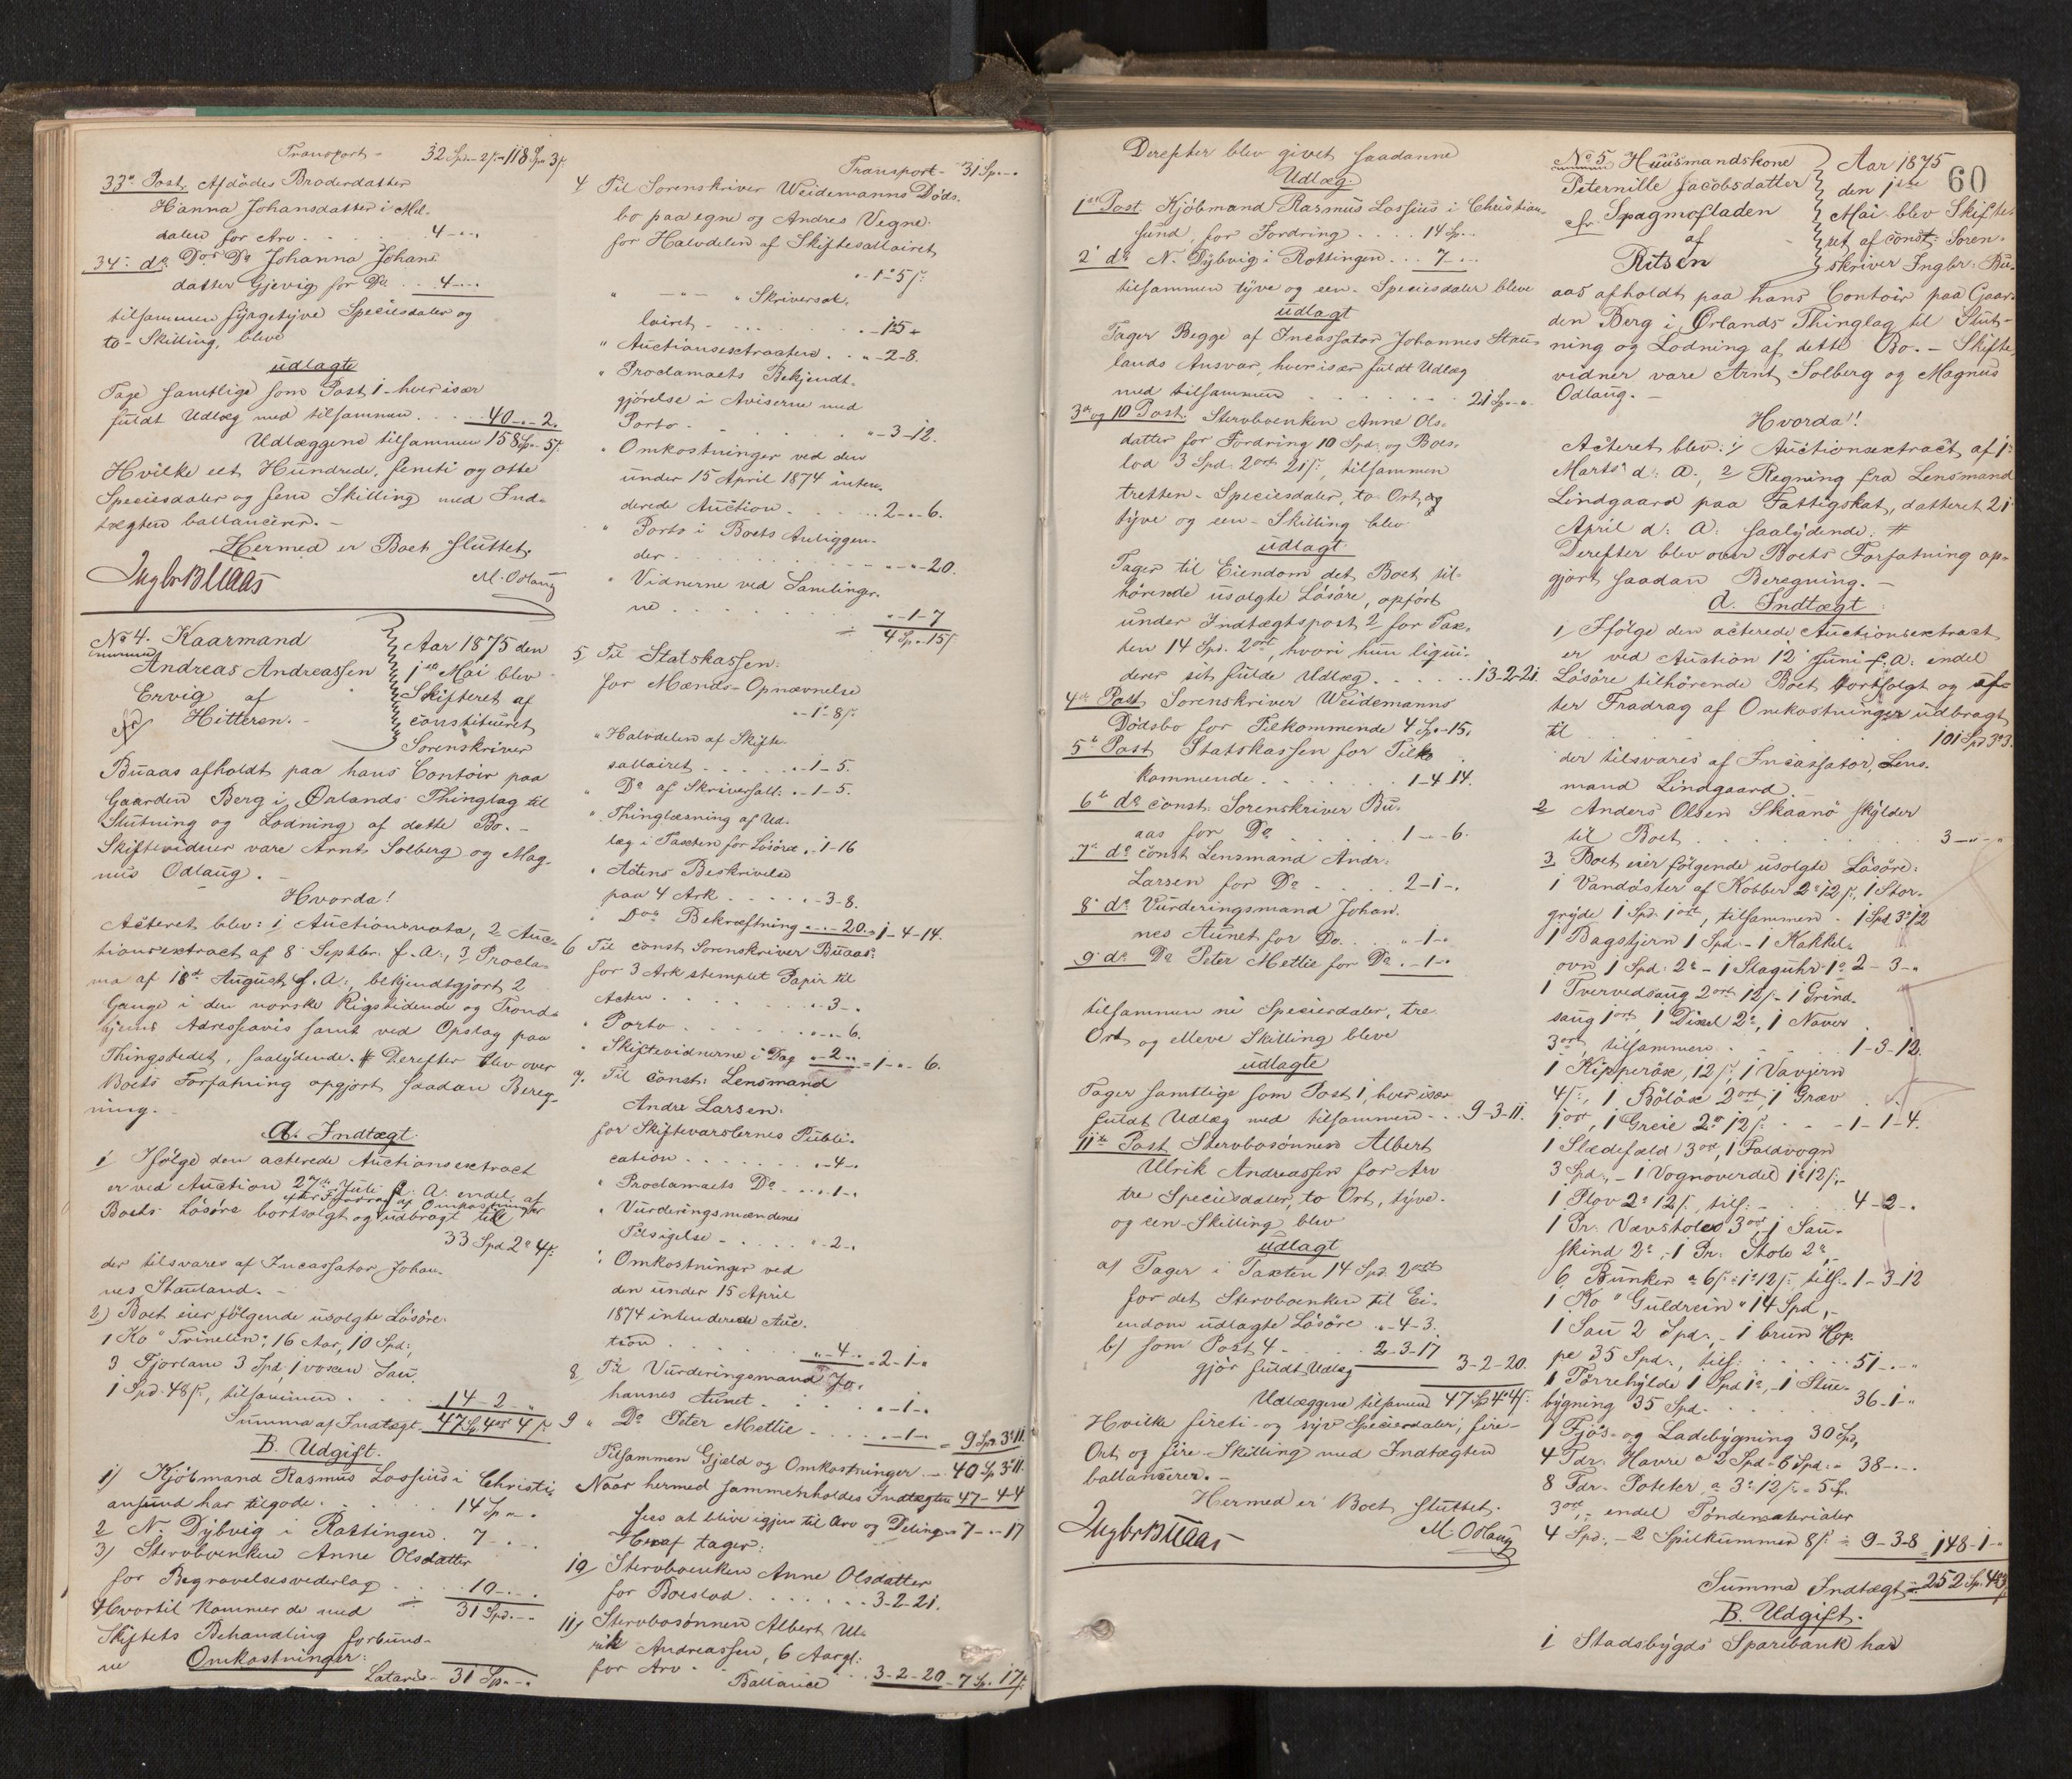 Transport - 32 Spd - 2 ß - 118 Spd 3 ß
33e Post. Afdödes Broderdatter
Hanna Johansdatter i Mel-
dalen for Arv . . . . 4 - " - "
34e do Dos Do Johanna Johans
datter Gjevig for Do . . 4 - " - "
tilsammen fyrgetyve Speciesdaler og
to - Skilling, bleve
udlagte
Tage samtlige som Post 1 - hver især
fuldt Udlæg med tilsammen . . . . 40 - " - 2.
Udlæggene tilsammen 158 Sp - " - 5 ß
Hvilke eet Hundrede, femti og otte
Speciesdaler og fem Skilling med Ind-
tægten ballancerer. -
Hermed er Boet sluttet.
Ingbr Buaas
M. Odlaug
No 4. Kaarmand
Andreas Andreassen
Ervig af
Hitteren. -
Aar 1875 den
1ste Mai blev
Skifteret af
constitueret
Sorenskriver
Buaas afholdt paa hans Contoir paa
Gaarden Berg i Ørlands Thinglag til
Slutning og Lodning af dette Bo. -
Skiftevidner vare Arnt Solberg og Mag-
nus Odlaug. -
Hvorda!
Acteret blev: 1, Auctionsnota, 2 Auc-
tionsextract af 8 Septbr. f. A., 3, Procla-
ma af 18de August f. A., bekjendtgjort 2
Gange i den norske Rigstidende og Trond-
hjems Adresseavis samt ved Opslag paa
Thingstedet, saalydende. # Derefter blev over
Boets Forfatning opgjort saadan Bereg-
ning. -
A. Indtægt.
1, Ifölge den acterede Auctionsextract
er ved Auction 27de Juli f. A. endel af
efter Fradrag af Omkostninger
Boets Lösöre bortsolgt og udbragt till
33 Spd 2 o 4 ß
der tilsvares af Incassator Johan-
nes Stauland. -
2) Boet eier fölgende usolgte Lösöre:
1 Ko "Trinelin" 16 Aar, 10 Spd.,
3 Fjorlam 3 Spd. 1 voxen Sau
1 Spd. 48 ß, tilsammen . . . 14 - 2 - "
Summa af Indtægt 47 Sp 4 ort 4 ß
B. Udgift.
1) Kjöbmand Rasmus Lossius i Christi-
ansund har tilgode . . . . 14 Sp " - "
2 N. Dybvig i Rottingen . 7 - " - "
3) Stervboenken Anne Olsdatter
for Begravelsesvederlag . . . 10 - " - "
Hvortil kommer de med ÷ 31 Spd. - " - "
Skiftets Behandling forbund-
ne Omkostninger:
Lateris - 31 Sp. - " - "
Transport - 31 Sp. - " - "
4 Til Sorenskriver Weidemanns Döds-
bo paa egne og Andres Vegne:
for Halvdelen af Skiftesallairet
" - 1 o 5 ß
" - " - " Skriversal-
lairet - . . . . . " - 1 - 5 "
" Auctionsextracten . . " - 2 - 8.
" Proclamaets Bekjendt-
gjörelse i Aviserne med
Porto . . . . . . " - 3 - 12.
" Omkostninger ved den
under 15 April 1874 inten-
derede Auction . . . . . 2 - " - 6.
" Porto i Boets Anliggen-
der . . . . . . . " - " - 20.
" Vidnerne ved Samlinger-
ne . . . . . . . " - 1 - 7
÷ 4 Sp. " 15 ß
5, Til Statskassen:
for Mænds-Opnævnelse
" - 1 - 8 ß
" Halvdelen af Skifte-
sallairet . . . . . " - 1 - 5.
" Do af Skriversall: " - 1 - 5.
" Thinglæsning af Ud-
læg i Taxten for Lösöre " - 1 - 16
" Actens Beskrivelse
paa 4 Ark . . . . . " - 3 - 8.
" Dos Bekræftning " - " - 20 = 1 - 4 - 14.
6 Til const Sorenskriver Buaas:
for 3 Ark stemplet Papir til
Acten . . . . . . " - 3 - "
" Porto . . . . . . " - " - 6.
" Skiftevidnerne i Dag " - 2 - " = 1 - " - 6.
7. Til const: Lensmand
Andr. Larsen:
for Skiftevarslernes Publi-
cation . . . . . . " - 4 - "
" Proclamaets Do . . . " - 1 - "
" Vurderingsmændenes
Tilsigelse - . . . . " - 2 - "
" Omkostninger ved
den under 15 April
1874 intenderede Auc-
tion . . . . . . . " - 4 - " = 2 - 1 - "
8 Til Vurderingsmand Jo-
hannes Aunet . . . . . " - 1 - "
9 " Do Peter Mettie . . . . " - 1 - " = 9 Spd. 3 o 11.
Tilsammen Gjæld og Omkostninger . - 40 Sp. 3 o 11.
Naar hermed sammenholdes Indtægten 47 - 4 - 4
sees at blive igjen til Arv og Deling = 7 - " - 17
Heraf tager:
10, Stervboenken Anne Olsdatter
for Boeslod . . . . . . . 3 - 2 - 21.
11) Stervbosönnen Albert Ul-
rik Andreassen, 6 Aargl:
for Arv - . . . . . 3 - 2 - 20 = 7 Sp. " 17 ß
Ballance
Derefter blev givet saadanne
Udlæg.
1ste Post. Kjöbmand Rasmus Lossius i Christian-
sund for Fordring . . . . 14 Sp. - "
2' do N. Dybvig i Rottingen . . . 7 - " - "
tilsammen tyve og een - Speciesdaler bleve
udlagt
Tager Begge af Incassator Johannes Stau-
lands Ansvar, hver især fuldt Udlæg
med tilsammen . . . . . . . 21 Sp. - " - "
3die og 10 Post. Stervboenken Anne Ols-
datter for Fordring 10 Spd. og Boes-
lod 3 Spd. 2 ort 21 ß, tilsammen
tretten - Speciesdaler, to - Ort, og
tyve og een - Skilling blev
udlagt.
Tager til Eiendom det Boet til-
hörende usolgte Lösöre, opfört
under Indtægtspost 2 for Tax-
ten 14 Spd. 2 ort, hvori hun liqui-
derer sit fulde Udlæg . . . . . 13 - 2 - 21.
4de Post Sorenskriver Weidemanns
Dödsbo for Tilkommende 4 Sp. " - 15.
5te Post Statskassen for Tilko
kommende . . . . . . 1 - 4 - 14.
6te do const. Sorenskriver Bu-
aas for Do . . . . . . 1 - " - 6.
7de do const Lensmand Andr.
Larsen for Do - . . . . 2 - 1 - "
8de do Vurderingsmand Johan-
nes Aunet for Do . . . " - 1 - "
9de do Do Peter Mettie for Do . " - 1 - "
tilsammen ni Speciesdaler, tre
Ort og elleve Skilling bleve
udlagte
Tager samtlige som Post 1, hver især
fuldt Udlæg med tilsammen - . . 9 - 3 - 11.
11te Post Stervbosönnen Albert
Ulrik Andreassen for Arv
tre Speciesdaler, to Ort, tyve-
og een-Skilling blev
udlagt
a) Tager i Taxten 14 Spd. 2 ort
for det Stervboenken til Ei-
endom udlagte Lösöre " - 4 - 3.
b) som Post 4 . . . . . 2 - 3 - 17
gjör fuldt Udlæg 3 - 2 - 20.
Udlæggene tilsammen 47 Sp 4 o 4 ß
Hvilke fireti - og syv Speciesdaler, fire-
Ort og fire-Skilling med Indtægten
ballancerer. -
Hermed er Boet sluttet.
Ingbr Buaas
M. Odlaug
60
No 5 Huusmandskone
Peternille Jacobsdatter
Spagmofladen
af
Ritsen
Aar 1875
den 1ste
Mai blev Skifte-
ret af const: Soren-
skriver Ingbr. Bu-
aas afholdt paa hans Contoir paa Gaar-
den Berg i Ørlands Thinglag til Slut-
ning og Lodning af dette Bo. - Skifte-
vidner vare Arnt Solberg og Magnus
Odlaug. -
Hvorda!!
Acteret blev: 1, Auctionsextract af 1'
Marts d: A:, 2 Regning fra Lensmand
Lindgaard paa Fattigskat, datteret 21
April d: A: saalydende: #
Derefter blev over Boets Forfatning op-
gjort saadan Beregning. -
A. Indtægt:
1, Ifölge den acterede Auctionsextract
er ved Auction 12' Juni f. A: endel
Lösöre tilhörende Boet bortsolgt og ef-
ter Fradrag af Omkostninger udbragt
til . . . . . . . . 101 Spd 3 o 3.
der tilsvares af Incassator, Lens-
mand Lindgaard.
2 Anders Olsen Skaanö skylder
til Boet . . . . . . . . 3 - " - "
3, Boet eier fölgende usolgte Lösöre:
1 Vandöster af Kobber 2 o 12 ß, 1 Stor-
gryde 1 Spd. 1 ort, tilsammen . 1 Spd 3 o 12
1 Bagstjern 1 Spd. - 1 Kakkel-
ovn 1 Spd. 2 o - 1 Staguhr 1 o 2 - 3 - "
1 Tvervedsaug 2 ort 12 ß - 1 Grind-
saug 1 ort, 1 Dixel 2 o, 1 Naver
3 ort tilsammen . . . . . 1 - 3 - 12.
1 Kipperöxe, 12 ß, 1 Vavjern
4 ß, 1 Bölöxe 2 ort, 1 Græv
1 ort, 1 Greie 2 o 12 ß . . . - 1 - 1 - 4.
1 Slædefæld 3 ort, 1 Foldvogn
3 Spd., - 1 Vognoverdel 1 o 12 ß, -
1 Plov 2 o 12 ß, tils: - . . . . 4 - 2 - "
1 Pr. Vævstoler 3 ort, 1 Sau-
skind 2 o, - 1 Pr: Stole 2 o,
6 Bunker a 6 ß = 1 o 12 ß tils. 1 - 3 - 12
1 Ko "Guldrein" 14 Spd, -
1 Sau 2 Spd., - 1 brun Hop-
pe 35 Spd., tils: . . . . . 51 - " - "
1 Törrehylde 1 Spd 1 o, - 1 Stue-
bygning 35 Spd. . . . . . 36 - 1 - "
1 Fjös- og Ladebygning 30 Spd,
4 Tdr. Havre a 2 Spd = 8 Spd: = 38 - " - "
8 Tdr. Poteter, a 3 o 12 ß = 5 S.
3 ort, - endel Töndematerialer
4 Spd. - 2 Spilkummer 8 ß = 9 - 3 - 8 = 148 - 1 - "
Summa Indtægt = 252 Sp. 4 o 3
B. Udgift.
1 Stadsbygds Sparebank har